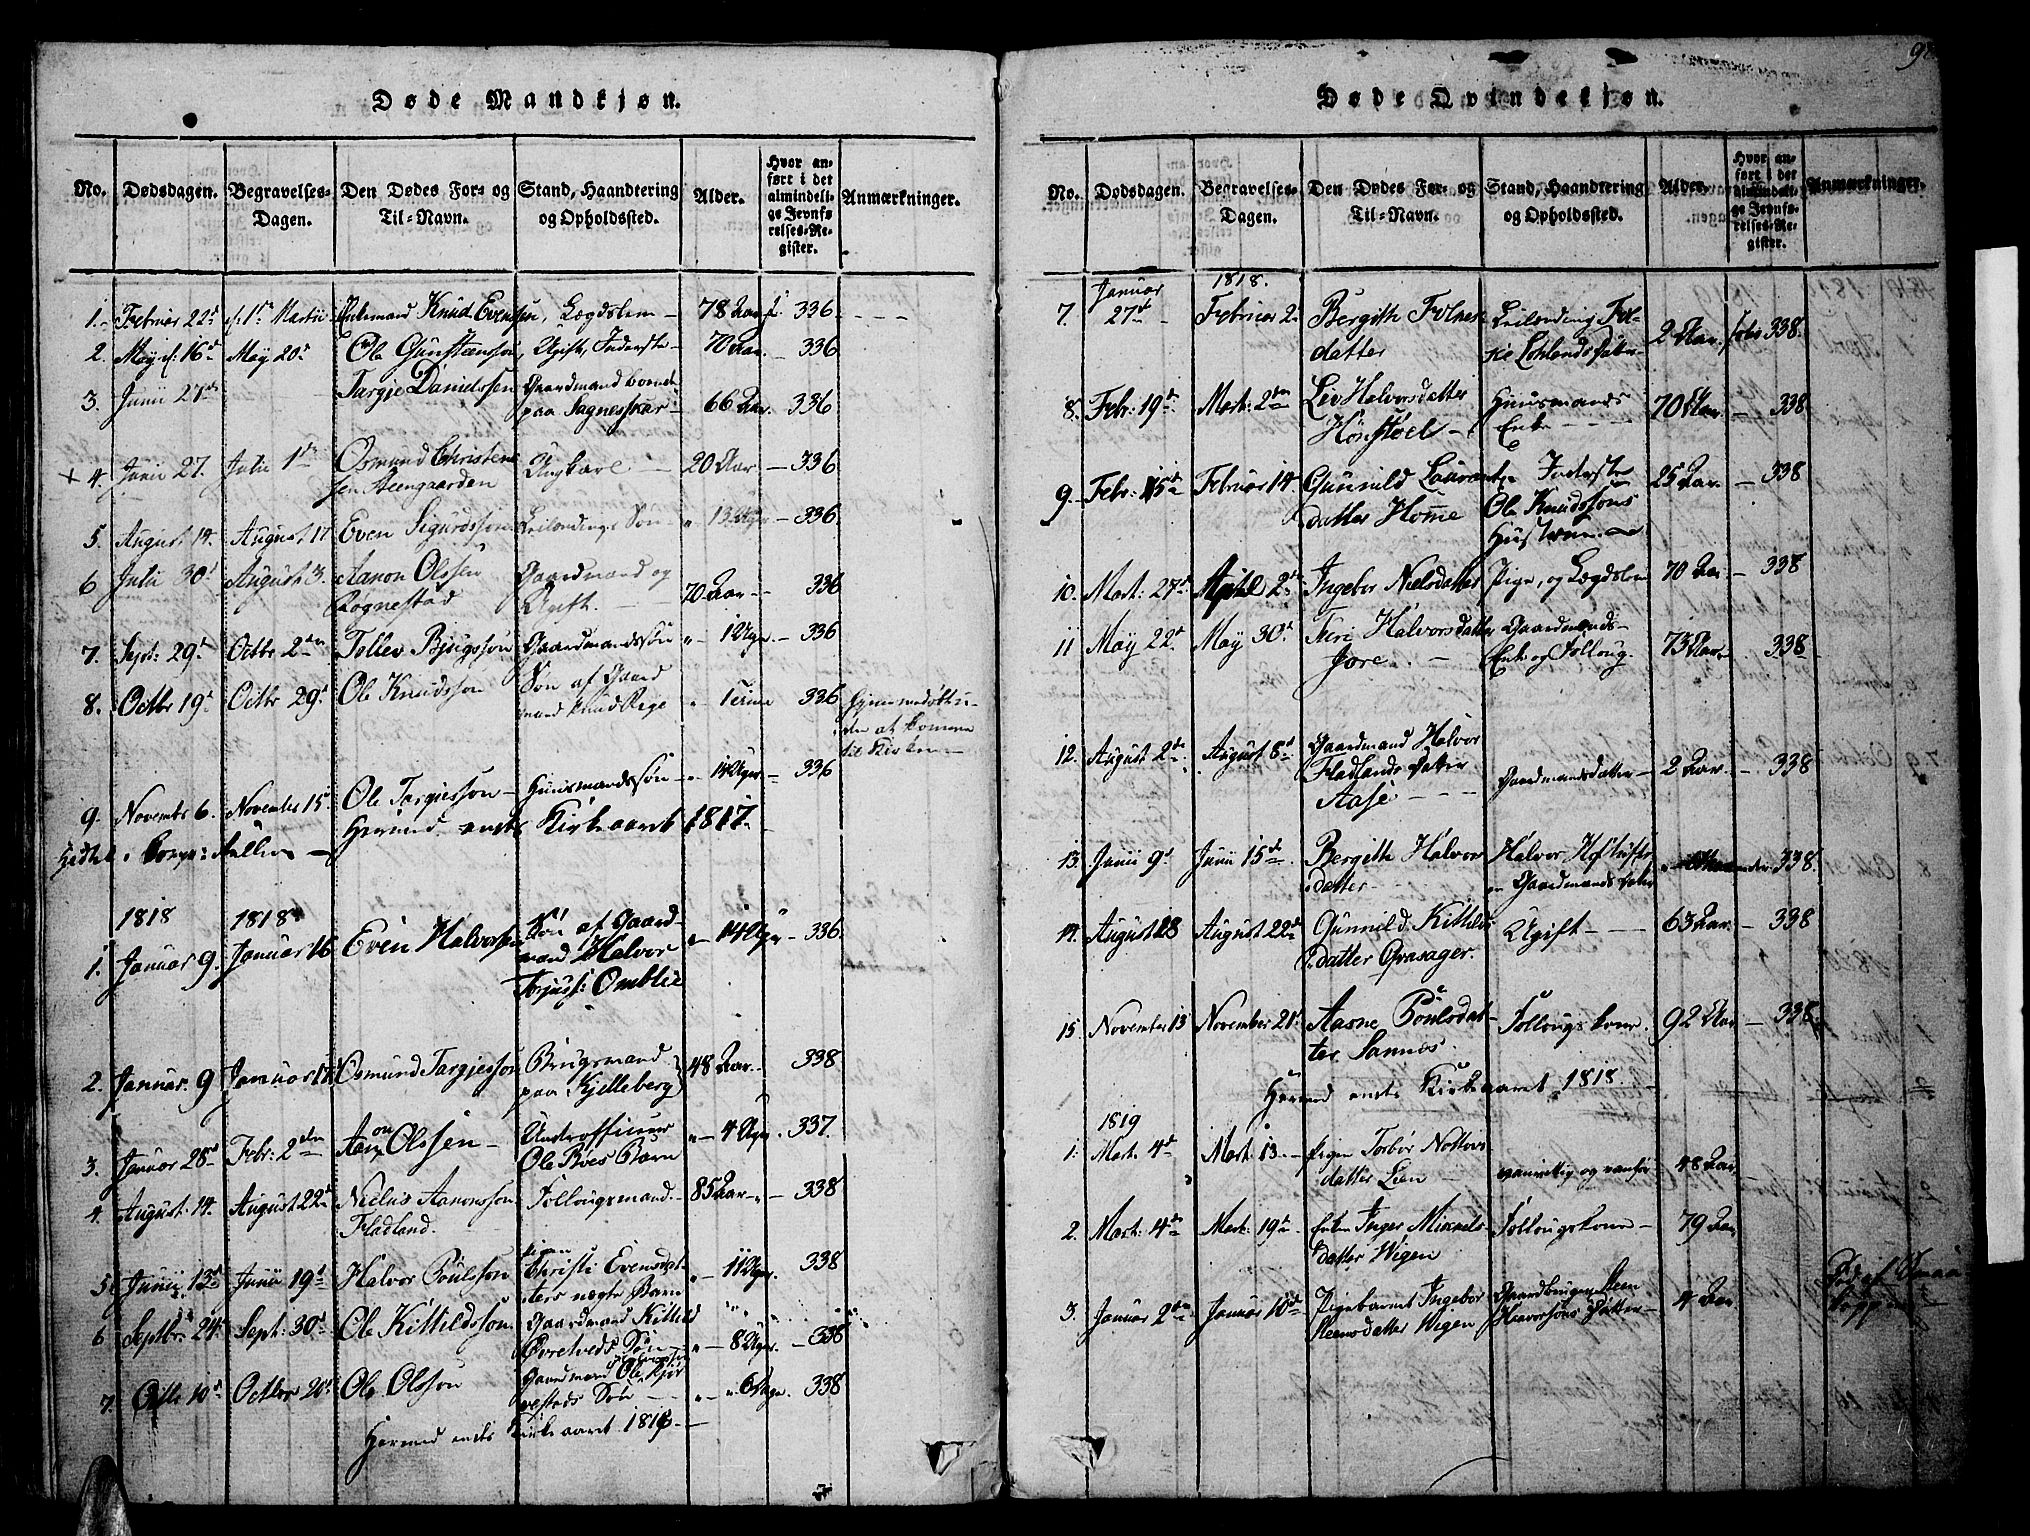 98
Døde Mandkjøn.
No.
Dødsdagen.
Begravelses-Dagen.
Den Dødes For- og Til-Navn.
Stand, Haandtering og Opholdssted.
Alder.
Hvor anført i det almindelige Jevnførelses-Register.
Anmærkninger.
1. Februar 22d 1ste Martii Enkemand Knud Evenssen, Lægdslem 78 Aar 336
2. May 16d May 20d Ole Gunstænson, Ugift, Inderste 70 Aar 336
3. Junii 27de Targje Danielssen Gaardmand boende
paa Sagnesskar 66 Aar. 336
4. Junii 27. Julii 1ste Osmund Christens
sen Steengaarden Ungkarl 20 Aar 336
5. August 14. August 17 Even Sigurdssøn Leilendings Søn 13 Uger 336
6 Julii 30d August 3. Aanon Olssen Gaardmand og
Rognestad Ugift. 70 Aar 336
7. Sept: 29d Octbr 2den Tollev Bjugssøn Gaardmandssøn 1 Uge 336
8. Octbr 19d Octbr 29d Ole Knudsson Søn af Gaard
mand Knud Rege 336
af komme
til Kirken
9. Novembr 6. November 15d Ole Torgiesson Huusmandssøn 14 Uger 336
Hermed endes Kirkeaaret 1817
1818 1818
1. Januar 9. Januar 16 Even Halvorssen Søn af Gaard-
mand Halvor
Torjuss: Omblie 14 Uger 336.
2. Januar. 9 Januar 17 Osmund Targjesson Brugsmand
paa Kjelleberg 48 Aar 338
3. Januar 28d Febr: 2den Aanon Olssen Underofficeer
Ole Boes Barn 4 Uger. 337.
4. August 14. August 22d Nielus Aanonsson Follougsmand. 85 Aar 338
Fladland.
5. Junii 13d Junii 19d Halvor Poulsson Pigen Christi Evensdat-
ters uægte Barn 11 Uger. 338
6 Septbr 24d Sept: 30d Ole Kittildsson Gaardmand Kittild
Øvretveds Søn 8 Uger. 338
7. Octbr 10d Octbr 20d Ole Olsson Gaardmand Ole Kjør
vestads Søn 6 Dage. 338
Hermed endes Kirkeaaret 1818
Døde Qvindekjøn.
No.
Dødsdagen.
Begravelses-Dagen.
Den Dødes For- og Til-Navn.
Stand, Haandtering og Opholdssted.
Alder.
Hvor anført i det almindelige Jevnførelses-Register.
Anmærkninger.
Januar 1818.
7. 27d Februar 2. Bergith Folkes
datter Leilending Fol-
ke Lohlands Datter 2 Aar. 338.
8. Febr: 19d Mart: 2den Liv Halvorsdatter
Hønstøel Huusmands
Enke 70 Aar 338
9. Febr: 15d Februar 14 Gunnild Laurants
datter Homme Inderste
Ole Knudssøns
Hustrue 25 Aar. 338
10. Mart: 27d April 2d Ingebor Nielsdatter Pige, og Lægdslem 70 Aar 338
11 May 22d May 30d Neri Halvorsdatter
Jore Gaardmands-
Enke og Folloug. 73 Aar 338
12. August 2d August 8d Gaardmand Halvor
Fladlands Datter
Aase Gaardmandsdatter 2 Aar. 338
13. Junii 9d Junii 15de Bergith Halvors
datter Halvor Hoftufts
en Gaardmands Datter 338.
14. August 18 August 22d Gunnild Kittilds
datter Grasager. Ugift 63 Aar. 338
15. November 13 November 21d Aasne Poulsdat-
ter Sannes. Follougskone. 92 Aar 338
Hermed endes Kirkeaaret 1818.
1819
1. Mart. 4d Mart. 13. Pigen Torbor Nottovs
datter Lien vanvittig og vanfør 48 Aar
2. Mart: 4de Mart: 19d Enken Inger Mikkels-
datter Wigen Follougskone 79 Aar
3. Januar 2den Januar 10d Pigebarnet Ingebor
Steensdatter Wigen Gaardbruger Steen
Halvorsøns Datter 4 Aar Død af Smaa-
kopper